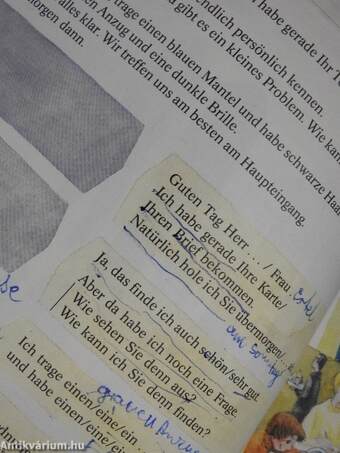 endlich persönlich kennen.
habe gerade Ihr Te
gibt es ein kleines Problem. Wie kan
trage einen blauen Mantel und habe schwarze Haar
en Anzug und eine dunkle Brille.
alles klar. Wir treffen uns am besten am Haupteingang.
morgen dann.
Guten Tag Herr ... / Frau
Ich habe gerade Ihre Karte/
Ihren Brief bekommen.
Natürlich hole ich Sie übermorgen/
am
Ja, das finde ich auch schön/sehr gut.
Aber da habe ich noch eine Frage.
Wie sehen Sie denn aus?
Wie kann ich Sie denn finden?
Ich trage einen/eine/ein ...
und habe einen/eine/ein
Antikvárium.hu